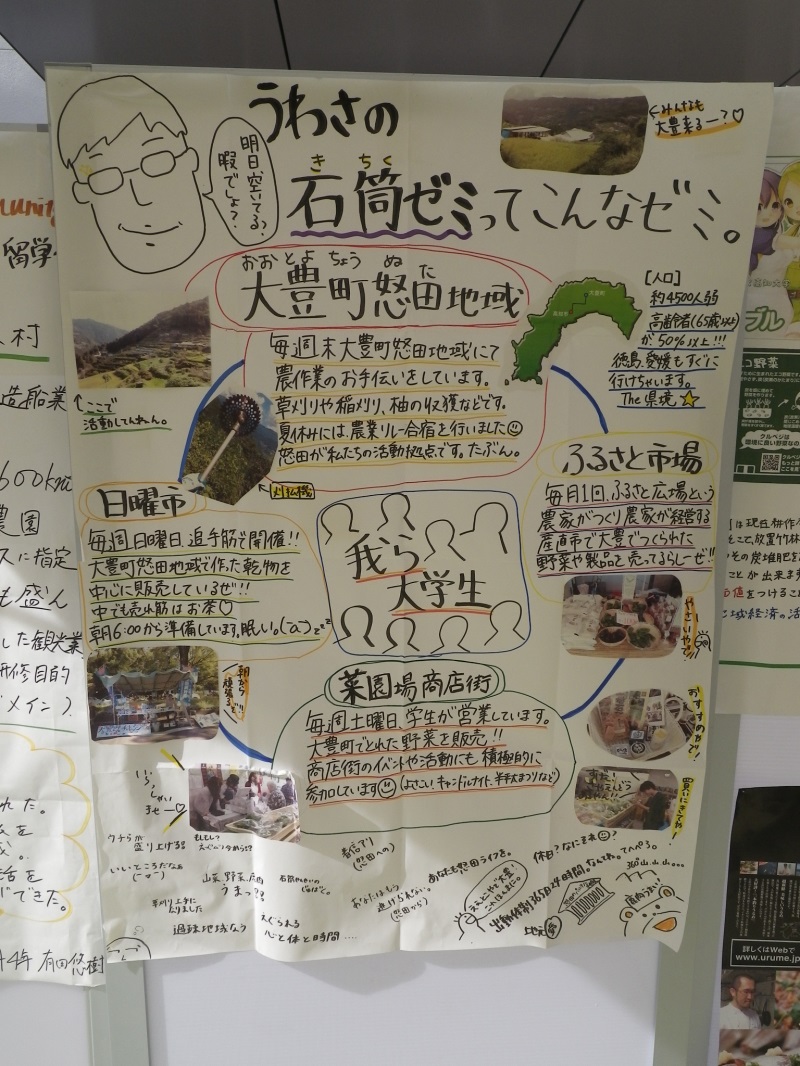 うわさの
きちく
石筒ゼミってこんなゼミ。
明日空いてる?
暇でしょ?
←みんなも
大豊来るー?♡
おおとよちょう ぬた
大豊町怒田地域
毎週末大豊町怒田地域にて
農作業のお手伝いをしています。
草刈りや稲刈り、柚の収穫などです。
夏休みには、農業リレー合宿を行いました☺
怒田が私たちの活動拠点です。たぶん。
[人口]
約4500人弱
高齢者(65歳以上)
が50%以上!!!
徳島、愛媛もすぐに
行けちゃいます。
The 県境☆
↑ここで
活動してんねーん。
←刈払機
日曜市
毎週日曜日、追手筋で開催!!
大豊町怒田地域で作った乾物を
中心に販売しているぜ!!
中でも売れ筋はお茶♡
朝6:00から準備しています。眠い。
朝から
頑張るぞ
我ら
大学生
ふるさと市場
毎月1回、ふるさと広場という
農家がつくり農家が経営する
産直市で大豊でつくられた
野菜や製品を売ってるらしーぜ!!
やすいやで!!
おすすめやで!
買いにきてや!
菜園場商店街
毎週土曜日、学生が営業しています。
大豊町でとれた野菜を販売!!
商店街のイベントや活動にも積極的に
参加しています☺(よさこい、キャンドルナイト、半平太まつりなど)
いらっしゃい
ませー♡
ウチらが
盛り上げる?
いいところだなぁ
山菜、野菜、店内
うまっ??
草刈り上手に
なりました
過疎地域なう
えぐられる
心と体と時間....
着信アリ
(怒田への)
わたしはもう
逃げられない。
(怒田から)
あなたも怒田ライフを。
休日?なにそれ☺?
出動体制365日24時間、なんてね。てへぺろ。
360°山、山、山...
直売うまい
留学
村
造船業
600km
農園
スに指定
も盛ん
した観光業
研修目的
メイン)
れた。
活を
ができた。
4年 有田悠樹
ブル
エコ野菜
クルベジは
詳しくはWebで
www.urume.jp